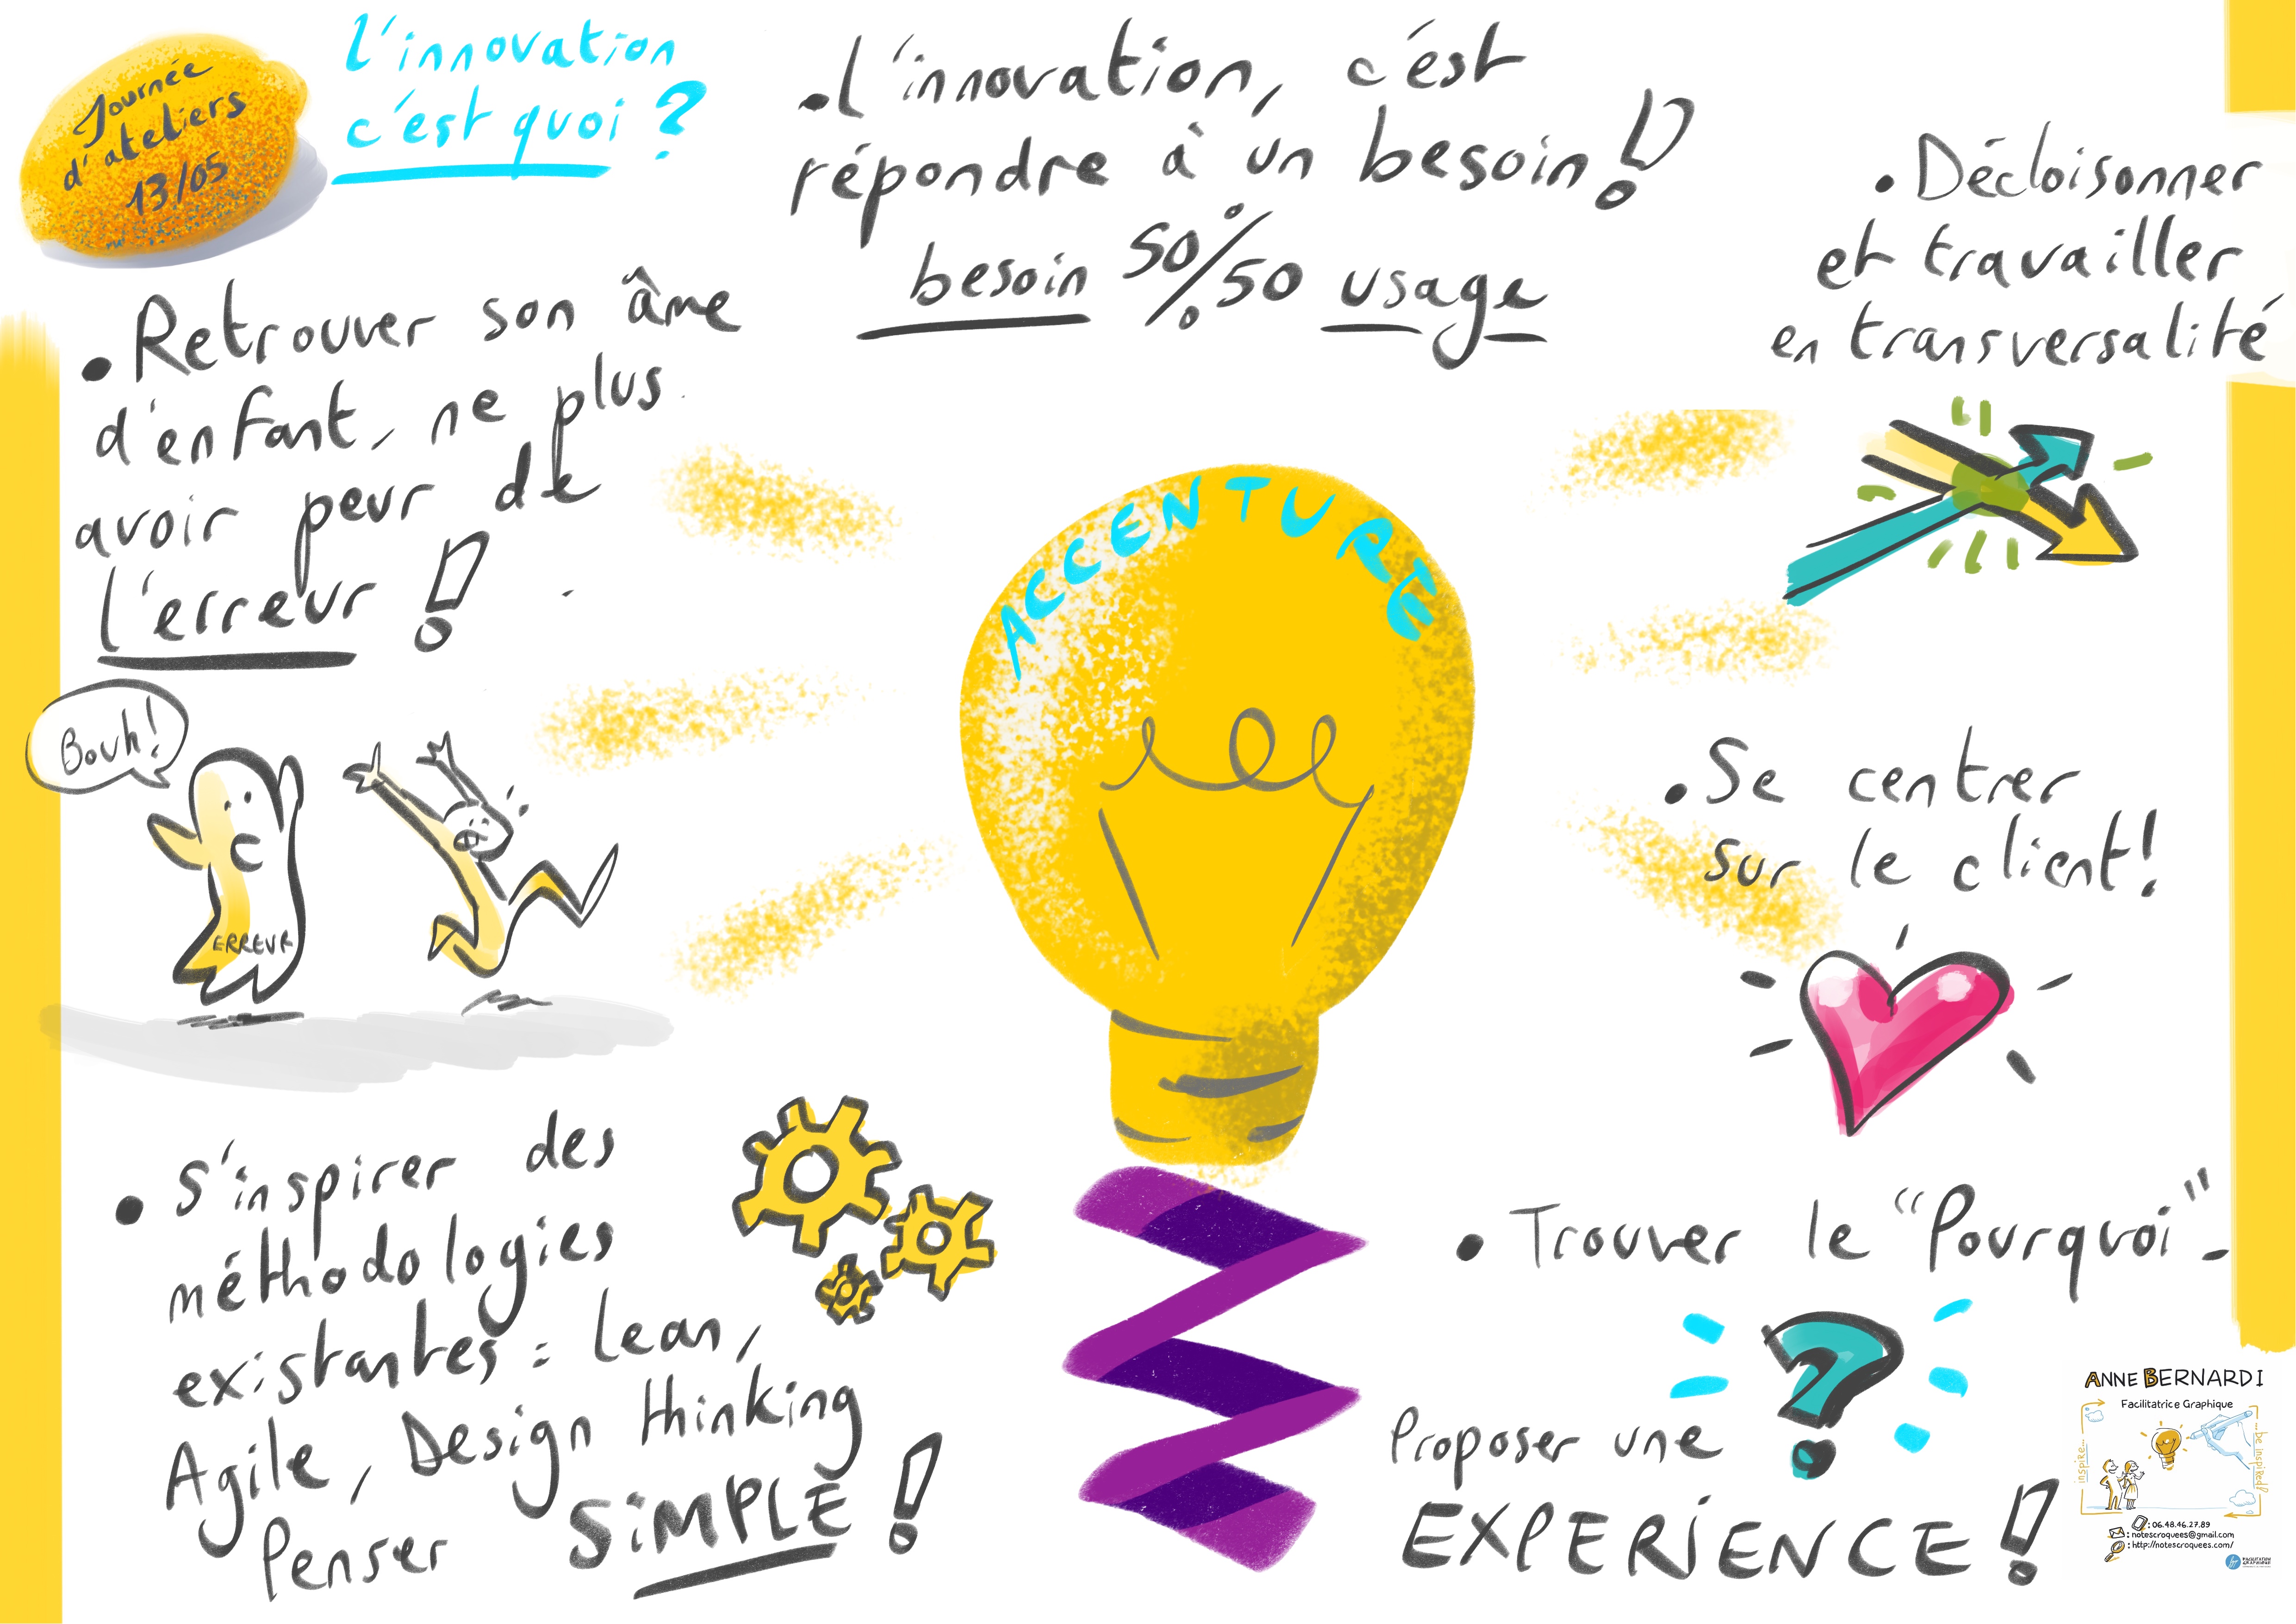 Journée
d'ateliers
13/05
l'innovation
c'est quoi ?
• l'innovation, c'est
répondre à un besoin !
besoin 50%50 usage
• Décloisonner
et travailler
en transversalité
• Retrouver son âme
d'enfant, ne plus
avoir peur de
l'erreur !
Bouh !
ERREUR
ACCENTURE
• Se centrer
sur le client !
• s'inspirer des
méthodologies
existantes : lean,
Agile, Design thinking
Penser SiMPLE !
• Trouver le "Pourquoi" -
?
Proposer une
EXPERIENCE !
ANNE BERNARDI
Facilitatrice Graphique
inspire...
...be inspired!
: 06.48.46.27.89
: notescroquees@gmail.com
: http://notescroquees.com/
FACILITATION
GRAPHIQUE